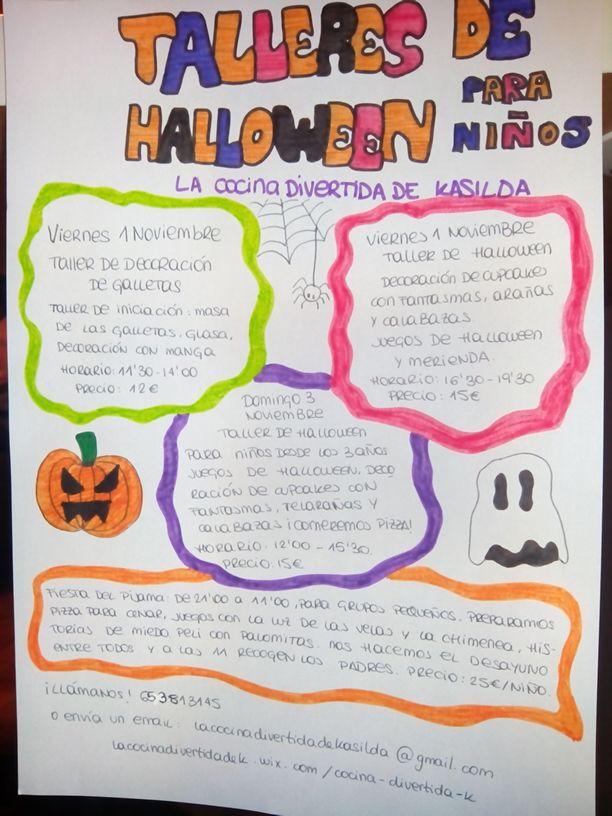 TALLERES DE
HALLOWEEN PARA
NIÑOS
LA COCINA DIVERTIDA DE KASILDA
VIERNES 1 NOVIEMBRE
TALLER DE DECORACIÓN
DE GALLETAS
TALLER DE INICIACIÓN: MASA
DE LAS GALLETAS, GLASA,
DECORACIÓN CON MANGA
HORARIO: 11'30-14'00
PRECIO: 12€
VIERNES 1 NOVIEMBRE
TALLER DE HALLOWEEN
DECORACIÓN DE CUPCAKES
CON FANTASMAS, ARAÑAS
Y CALABAZAS
JUEGOS DE HALLOWEEN
Y MERIENDA.
HORARIO: 16'30-19'30
PRECIO: 15€
DOMINGO 3
NOVIEMBRE
TALLER DE HALLOWEEN
PARA NIÑOS DESDE LOS 3 AÑOS
JUEGOS DE HALLOWEEN. DECO
RACIÓN DE CUPCAKES CON
FANTASMAS, TELARAÑAS Y
CALABAZAS ¡COMEREMOS PIZZA!
HORARIO: 12'00 - 15'30.
PRECIO: 15€
FIESTA DEL PIJAMA: DE 21'00 A 11'00, PARA GRUPOS PEQUEÑOS. PREPARAMOS
PIZZA PARA CENAR, JUEGOS CON LA LUZ DE LAS VELAS Y LA CHIMENEA, HIS-
TORIAS DE MIEDO PELI CON PALOMITAS. NOS HACEMOS EL DESAYUNO
ENTRE TODOS Y A LAS 11 RECOGEN LOS PADRES. PRECIO: 25€/NIÑO.
¡LLÁMANOS! 653813145
O ENVÍA UN EMAIL: lacocinadivertidadekasilda@gmail.com
lacocinadivertidadek.wix.com/cocina-divertida-k